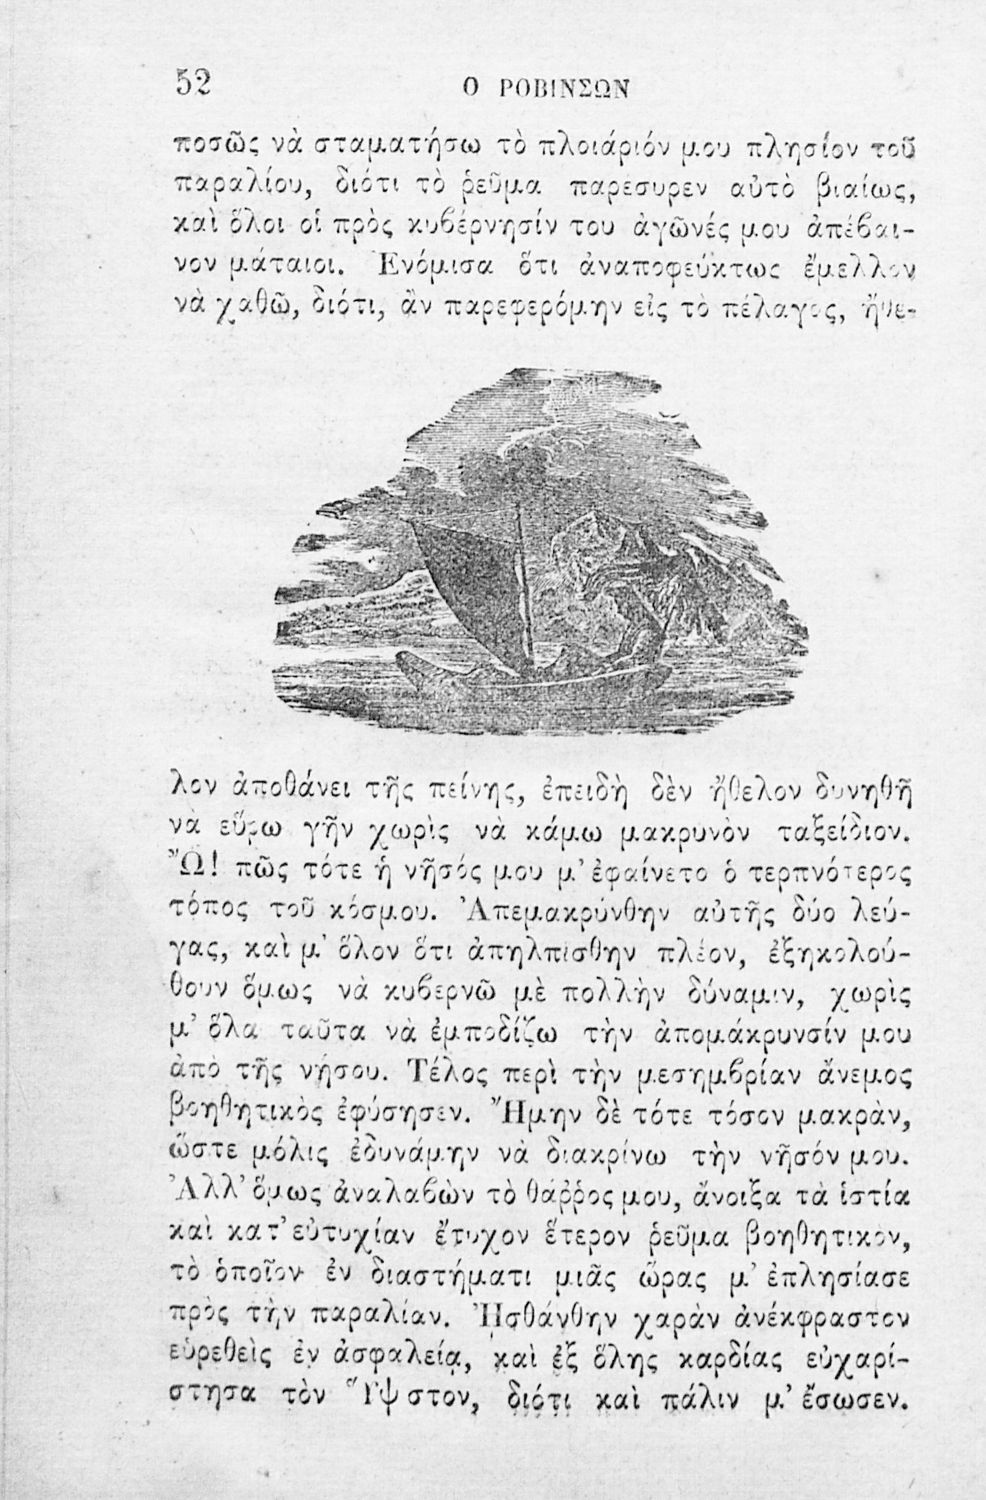 52
Ο ΡΟΒΙΝΣΩΝ
ποσῶς νὰ σταματήσω τὸ πλοιάριόν μου πλησίον τοῦ
παραλίου, διότι τὸ ῥεῦμα παρέσυρεν αὐτὸ βιαίως,
καὶ ὅλοι οἱ πρὸς κυβέρνησίν του ἀγῶνές μου ἀπέβαι-
νον μάταιοι. Ἐνόμισα ὅτι ἀναποφεύκτως ἔμελλον
νὰ χαθῶ, διότι, ἂν παρεφερόμην εἰς τὸ πέλαγος, ἤθε-
λον ἀποθάνει τῆς πείνης, ἐπειδὴ δὲν ἤθελον δυνηθῆ
νὰ εὕρω γῆν χωρὶς νὰ κάμω μακρυνὸν ταξείδιον.
Ὢ! πῶς τότε ἡ νῆσός μου μ’ ἐφαίνετο ὁ τερπνότερος
τόπος τοῦ κόσμου. Ἀπεμακρύνθην αὐτῆς δύο λεύ-
γας, καὶ μ’ ὅλον ὅτι ἀπηλπίσθην πλέον, ἐξηκολού-
θουν ὅμως νὰ κυβερνῶ μὲ πολλὴν δύναμιν, χωρὶς
μ’ ὅλα ταῦτα νὰ ἐμποδίζω τὴν ἀπομάκρυνσίν μου
ἀπὸ τῆς νήσου. Τέλος περὶ τὴν μεσημβρίαν ἄνεμος
βοηθητικὸς ἐφύσησεν. Ἤμην δὲ τότε τόσον μακρὰν,
ὥστε μόλις ἐδυνάμην νὰ διακρίνω τὴν νῆσόν μου.
Ἀλλ’ ὅμως ἀναλαβὼν τὸ θάῤῥος μου, ἄνοιξα τὰ ἱστία
καὶ κατ’ εὐτυχίαν ἔτυχον ἕτερον ῥεῦμα βοηθητικὸν,
τὸ ὁποῖον ἐν διαστήματι μιᾶς ὥρας μ’ ἐπλησίασε
πρὸς τὴν παραλίαν. Ἠσθάνθην χαρὰν ἀνέκφραστον
εὑρεθεὶς ἐν ἀσφαλείᾳ, καὶ ἐξ ὅλης καρδίας εὐχαρί-
στησα τὸν Ὕψιστον, διότι καὶ πάλιν μ’ ἔσωσεν.